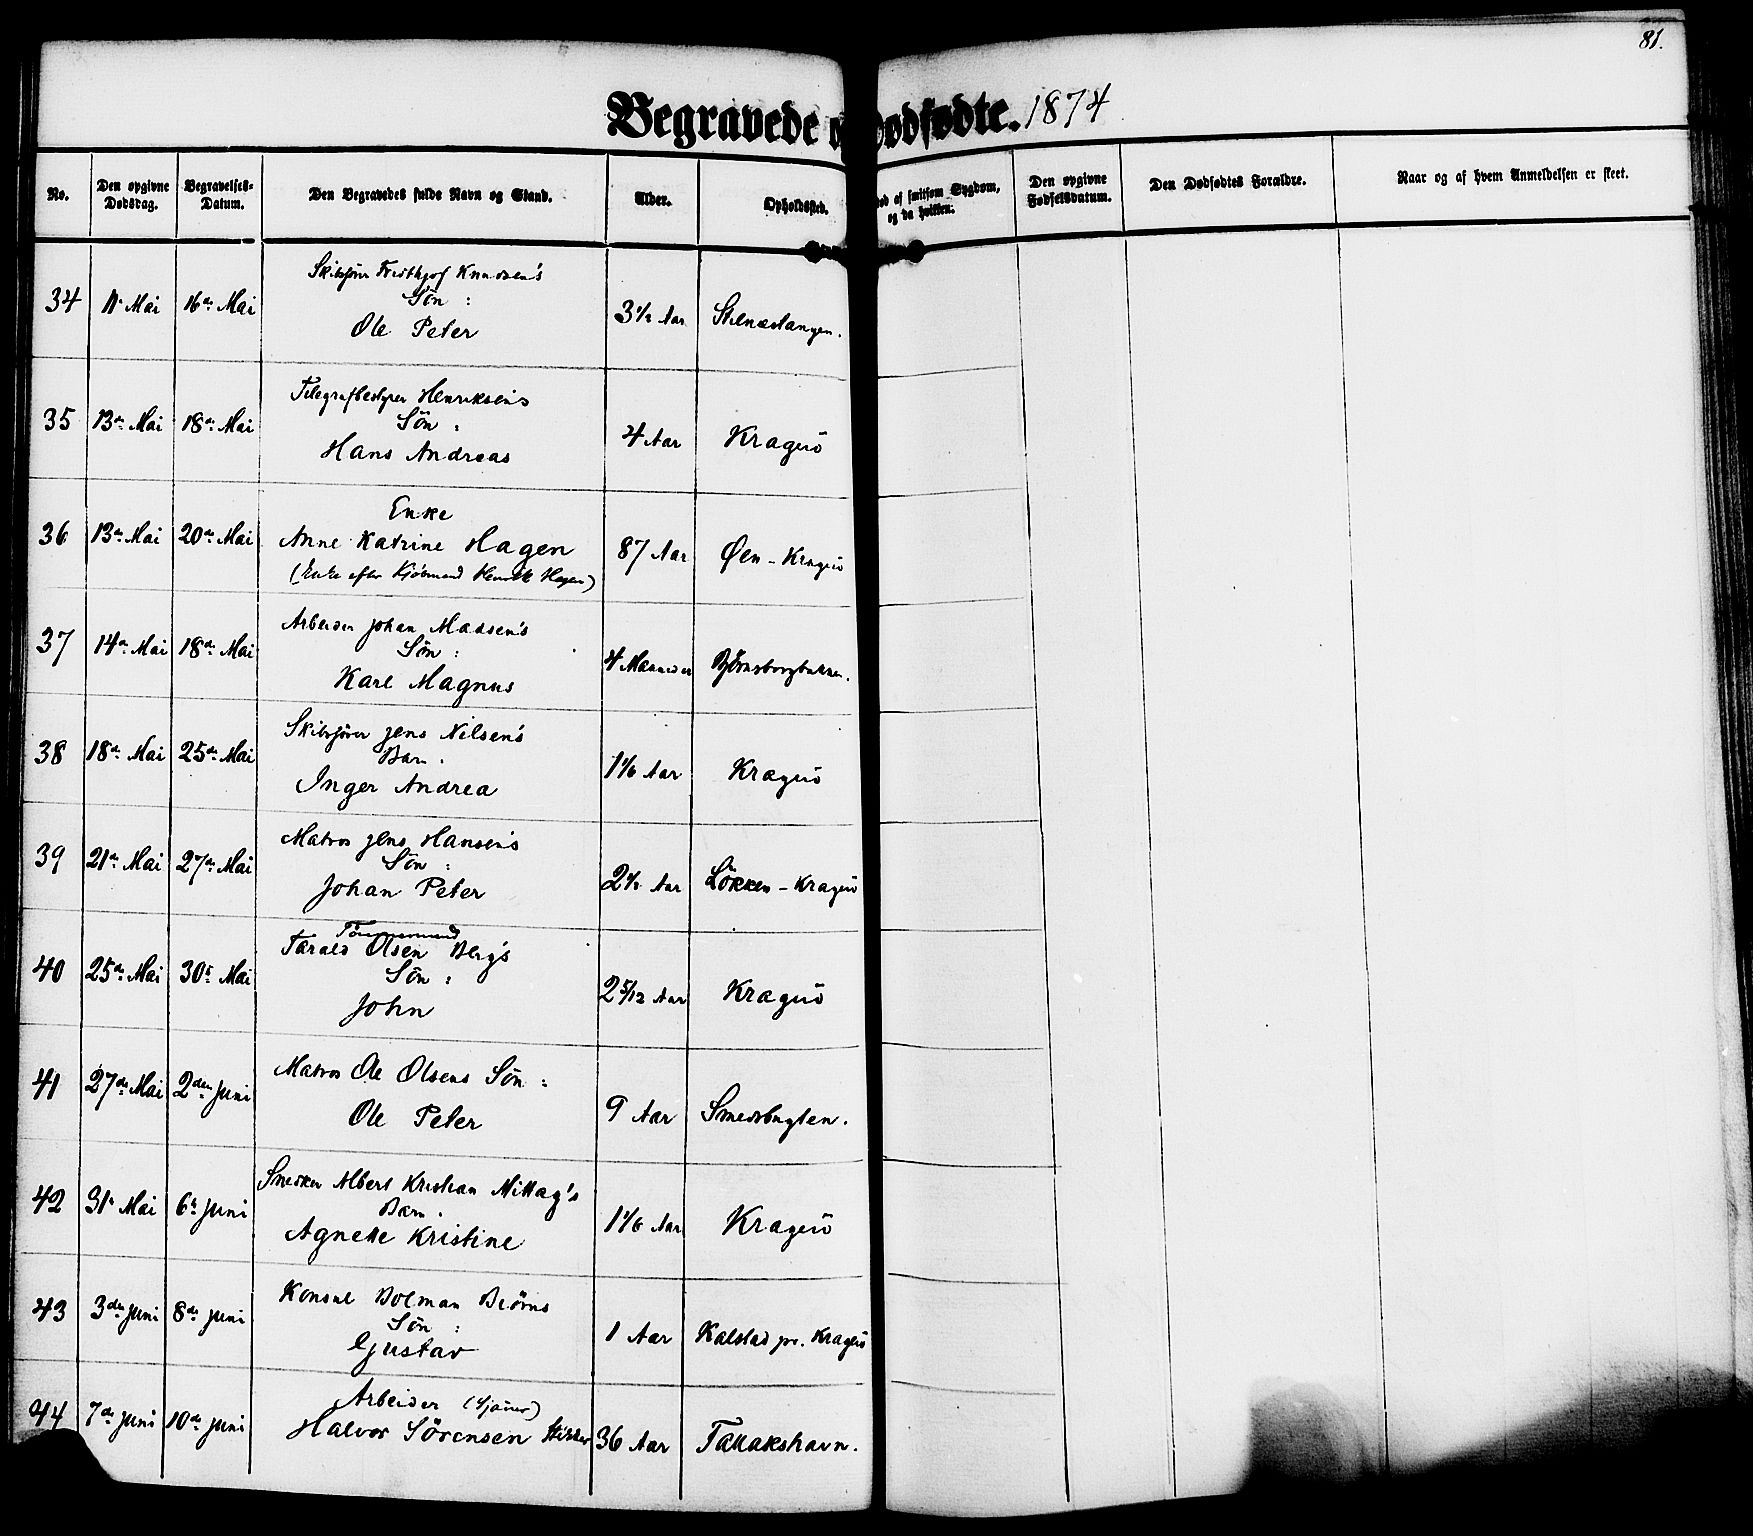 81.
Begravede Dødfødte. 1874
No. Den opgivne Dødsdag. Begravelses-Datum. Den Begravedes fulde Navn og Stand. Alder. Opholdssted. af smitsom Sygdom, og da hvilken: Den opgivne Fødselsdatum. Den Dødfødtes Forældre. Naar og af hvem Anmeldelsen er skeet.
Skibsfører Fridthjof Knudsen's
Søn :
34 11te Mai 16de Mai Ole Peter 3 1/2 Aar Stilnæstangen.
Telegrafbestyrer Henriksen's
Søn :
35 13de Mai 18de Mai Hans Andreas 4 Aar Kragerö
Enke
36 13de Mai 20de Mai Anne Katrine Hagen 87 Aar Øen - Kragerö
(Enke efter Kjöbmand Henrik Hagen)
Arbeider Johan Madsen's
Sön :
37 14de Mai 18de Mai Karl Magnus 4 Maaneder Björnsborgbakken.
Skibsfører Jens Nilsen's
Barn.
38 18de Mai 25de Mai Inger Andrea 1 1/6 Aar Kragerö
Matros Jens Hansen's
Sön :
39 21de Mai 27de Mai Johan Peter 2 1/2 Aar Lökken - Kragerö
Tömmermand
Tarald Olsen Berg's
Sön :
40 25de Mai 30te Mai John 2 5/12 Aar Kragerö
Matros Ole Olsens Sön :
41 27de Mai 2den Juni Ole Peter 9 Aar Smedsbugten.
Snedker Albert Kristian Mittag's
Barn.
42 31te Mai 6te Juni Agnette Kristine 1 1/6 Aar Kragerö
Konsul Bolman Biörns
Sön :
43 3den Juni 8de Juni Gustav 1 Aar Kalstad pr. Kragerö
Arbeider (Sjauer)
44 7de Juni 10de Juni Halvor Sörensen 36 Aar Tallakshavn.